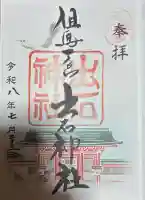 奉拝
但馬一宮
出石神社
出石
神社
令和八年七月